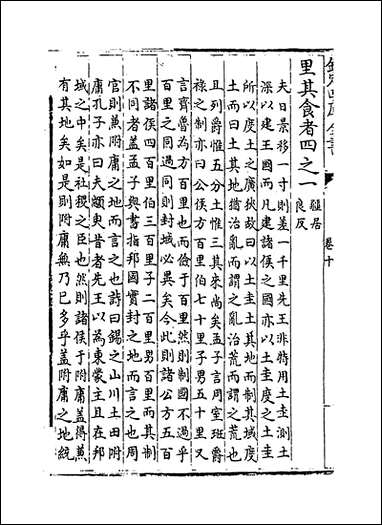 欽定四庫全書
卷十
里其食者四之一
疆居
良反
夫日景移一寸則差一千里先王非特用土圭測土
深以建王國而凡建諸侯之國亦以土圭度之土圭
所以度土之廣狹故曰以土圭土其地而制其域度
土而曰土其地猶治亂而謂之亂治荒而謂之荒也
且列爵惟五分土惟三其來尚矣孟子言周室班爵
祿之制亦曰公侯方百里伯七十里子男五十里又
言齊魯為方百里也而儉于百里然則制國不過乎
百里之同過同則封域必異矣今此則諸公方五百
里諸侯四百里伯三百里子二百里男百里而其制
不同者蓋孟子與書指邦國實封之地而言之也周
官則兼附庸之地而言之也詩曰錫之山川土田附
庸孔子亦曰夫顓臾昔者先王以為東蒙主且在邦
域之中矣是社稷之臣也然則諸侯于附庸蓋得兼
有其地矣如是則附庸無乃已多乎蓋附庸之地統